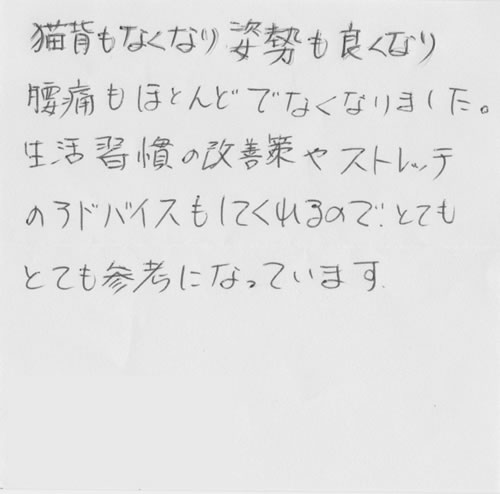 猫背もなくなり姿勢も良くなり
腰痛もほとんどでなくなりました。
生活習慣の改善策やストレッチ
のアドバイスもしてくれるので、とても
とても参考になっています.